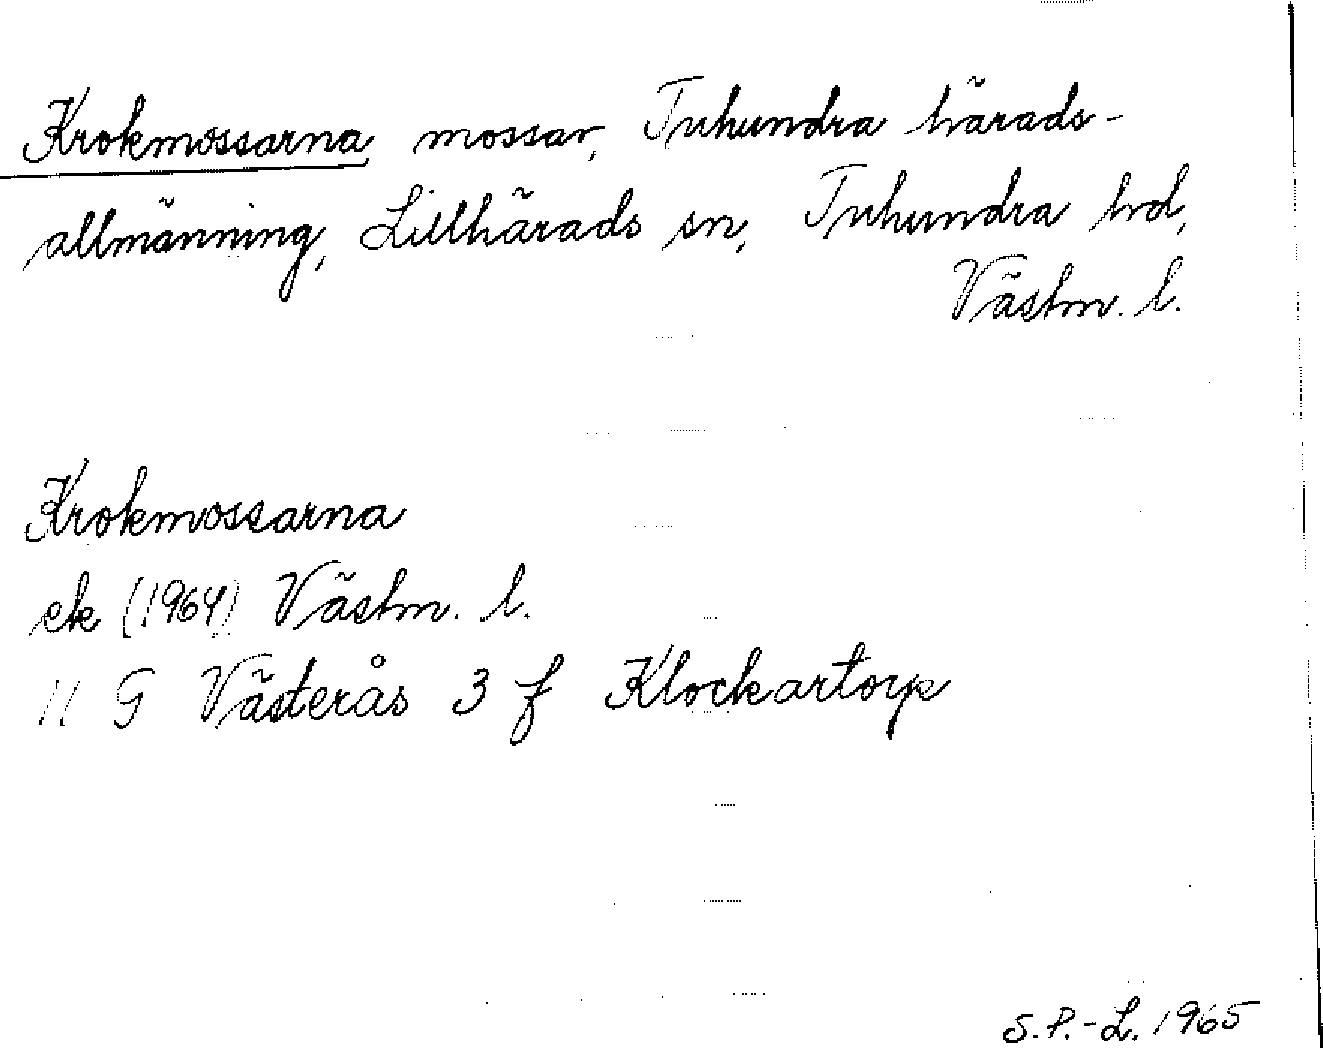 Krokmossarna mossar, Tuhundra härads-
allmänning, Lillhärads sn, Tuhundra hd,
Västm. l.
Krokmossarna
ek (1964) Västm. l.
11 G Västerås 3 f Klockartorp
S.P.-L. 1965